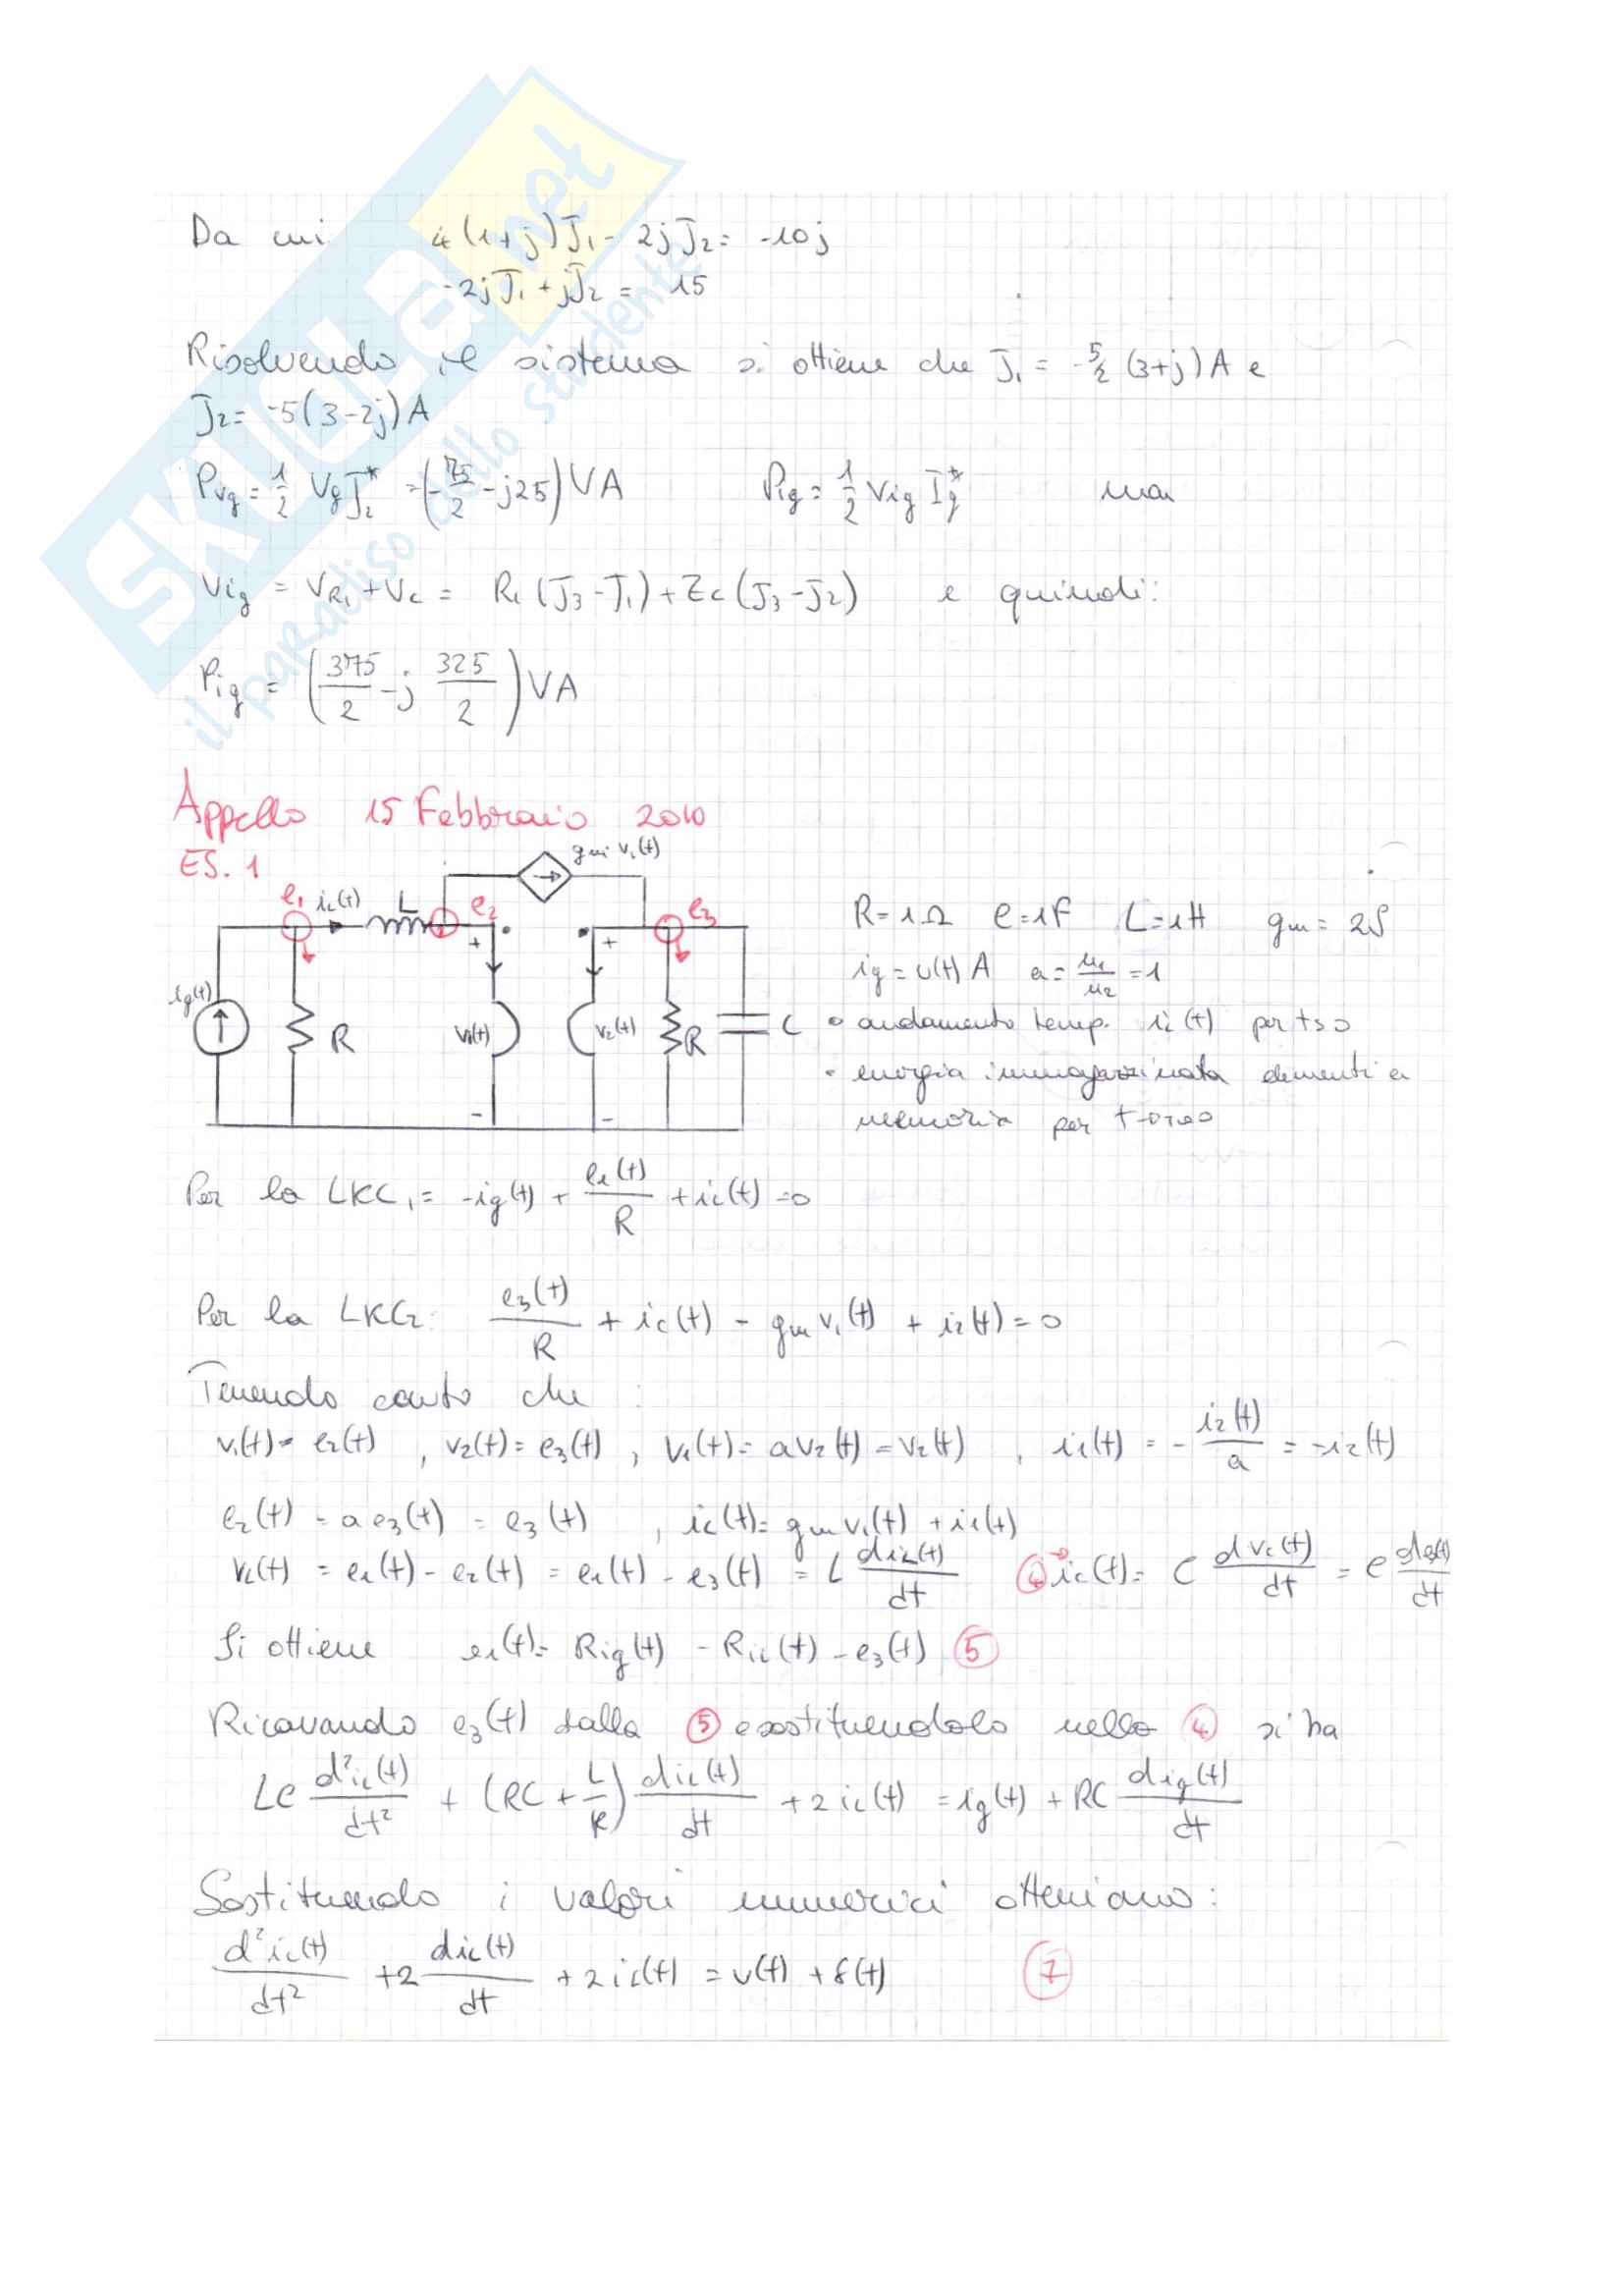 SKUOLA.net
il paradiso dello studente
Da cui 4(1+j)J̅₁ - 2jJ̅₂ = -10j
-2jJ̅₁ + jJ̅₂ = 15
Risolvendo il sistema si ottiene che J̅₁ = -5/2 (3+j) A e
J̅₂ = -5(3-2j) A
Pvg = 1/2 Vg J̅₂* = (-75/2 - j25) VA Pig = 1/2 Vig I̅g* ma
Vig = VR₁ + Vc = R₁ (J̅₃ - J̅₁) + Zc (J̅₃ - J̅₂) e quindi:
Pig = (375/2 - j 325/2) VA
Appello 15 Febbraio 2010
ES. 1
gm v₁(t)
e₁ iL(t) L e₂ e₃
+ +
ig(t) R v₁(t) v₂(t) R C
- -
R = 1Ω C = 1F L = 1H gm = 2S
ig = u(t) A a = n₁/n₂ = 1
• andamento temp. iL(t) per t≥0
• energia immagazzinata elementi a
memoria per t→∞
Per la LKC₁ = -ig(t) + e₁(t)/R + iL(t) = 0
Per la LKC₂: e₃(t)/R + ic(t) - gm v₁(t) + i₂(t) = 0
Tenendo conto che :
v₁(t) = e₂(t) , v₂(t) = e₃(t) , v₁(t) = a v₂(t) = v₂(t) , i₁(t) = - i₂(t)/a = -i₂(t)
e₂(t) = a e₃(t) = e₃(t) , iL(t) = gm v₁(t) + i₁(t)
vL(t) = e₁(t) - e₂(t) = e₁(t) - e₃(t) = L diL(t)/dt ④→ ic(t) = C dvc(t)/dt = C de₃(t)/dt
Si ottiene e₁(t) = Rig(t) - RiL(t) - e₃(t) ⑤
Ricavando e₃(t) dalla ⑤ e sostituendolo nella ④ si ha
LC d²iL(t)/dt² + (RC + L/R) diL(t)/dt + 2iL(t) = ig(t) + RC dig(t)/dt
Sostituendo i valori numerici otteniamo:
d²iL(t)/dt² + 2 diL(t)/dt + 2iL(t) = u(t) + δ(t) ⑦